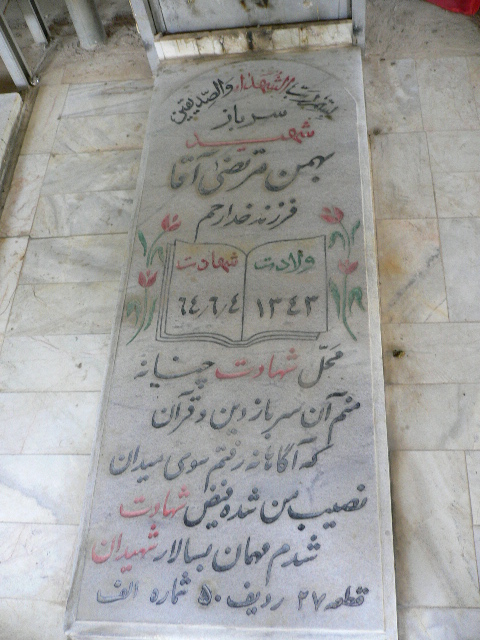 بسم رب الشهداء والصدیقین
سرباز
شهید
بهمن مرتضی آقا
فرزند خدارحم
ولادت شهادت
۱۳۴۳ ۶۴٫۶٫۴
محل شهادت چنانه
منم آن سرباز دین و قرآن
که آگاهانه رفتم سوی میدان
نصیب من شده فیض شهادت
شدم مهمان بسالار شهیدان
قطعه ۲۷ ردیف ۵۰ شماره الف